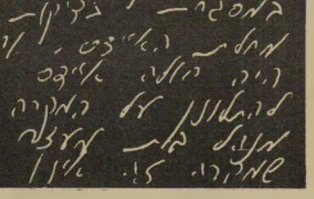 במסגרת בדיקת
מחלת האיידס,
היה חולה איידס
להתלונן על המקרה
מנהל בית
שמקרה זה אינו